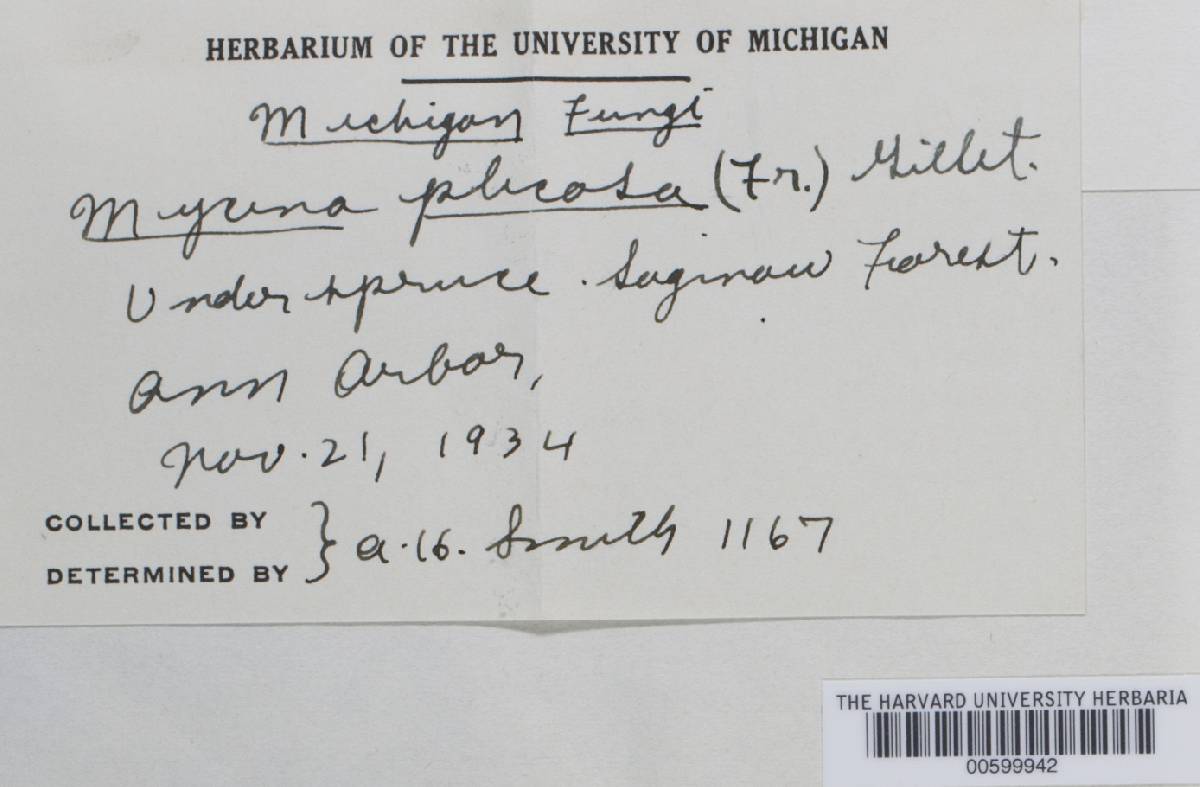 HERBARIUM OF THE UNIVERSITY OF MICHIGAN
Michigan Fungi
Mycena plicosa (Fr.) Gillet.
Under spruce. Saginaw Forest.
Ann Arbor,
Nov. 21, 1934
COLLECTED BY
DETERMINED BY } A. H. Smith 1167
THE HARVARD UNIVERSITY HERBARIA
00599942